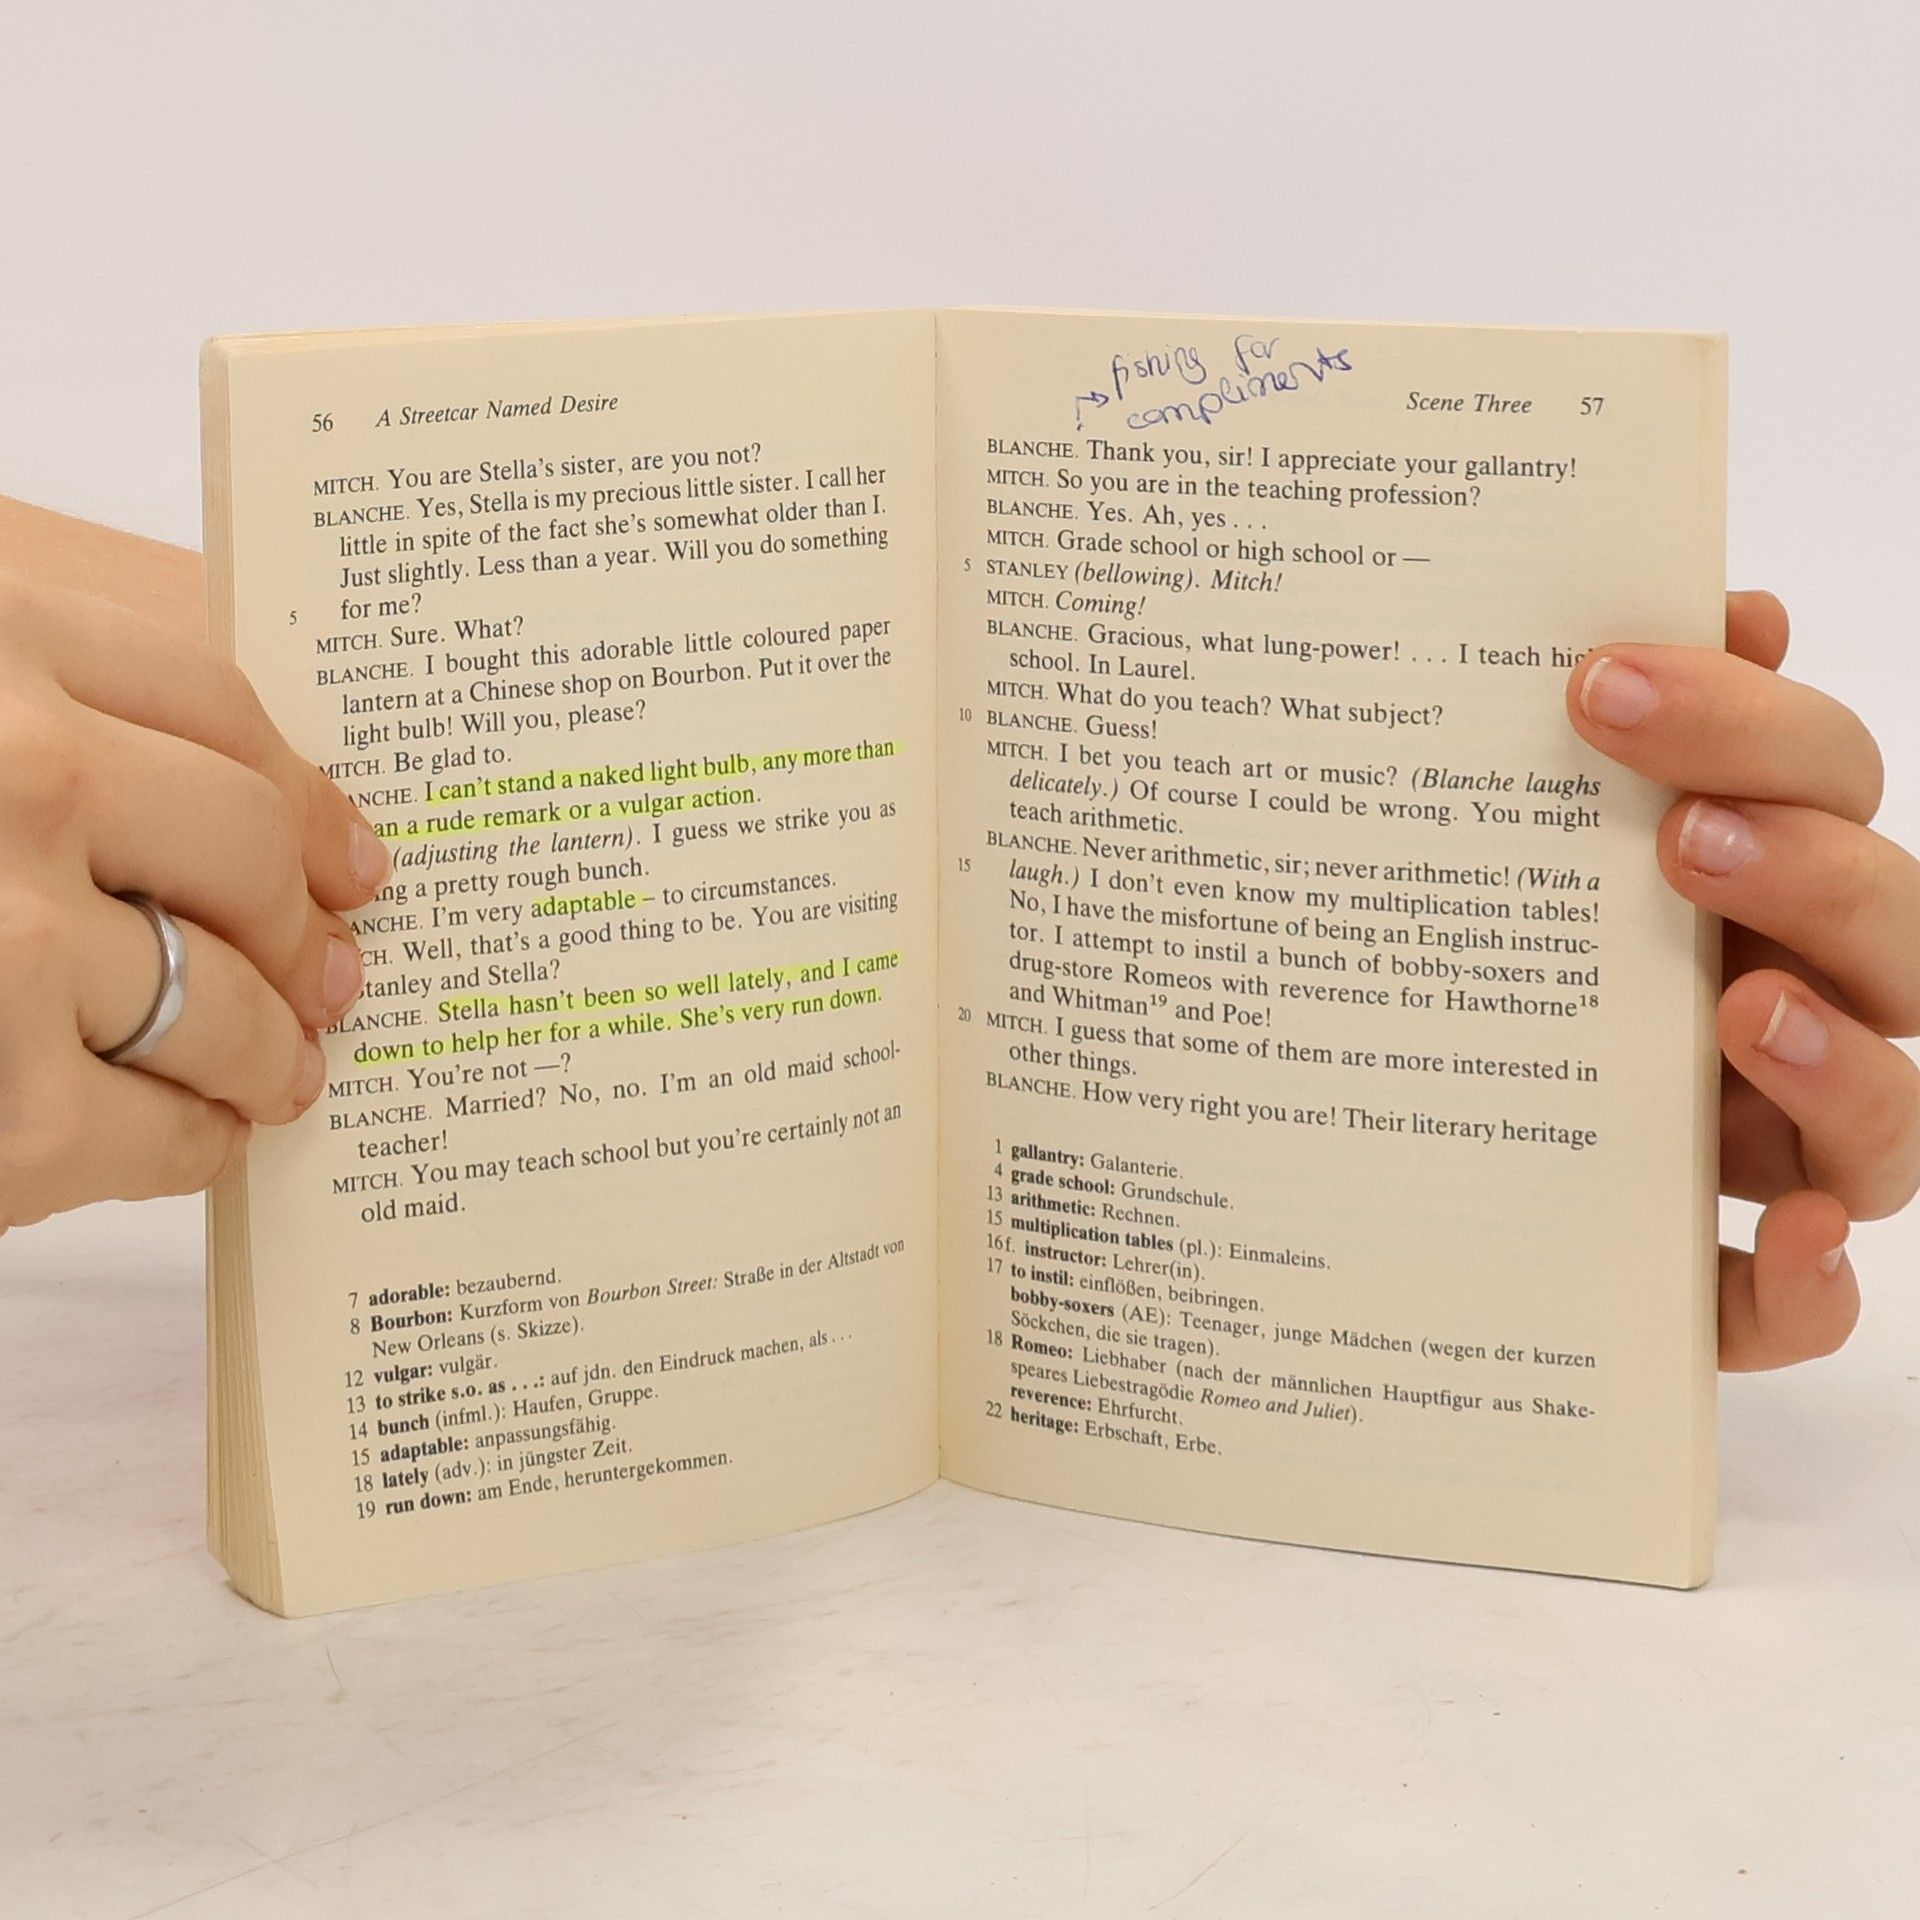 56 A Streetcar Named Desire
MITCH. You are Stella's sister, are you not?
BLANCHE. Yes, Stella is my precious little sister. I call her
little in spite of the fact she's somewhat older than I.
Just slightly. Less than a year. Will you do something
5 for me?
MITCH. Sure. What?
BLANCHE. I bought this adorable little coloured paper
lantern at a Chinese shop on Bourbon. Put it over the
light bulb! Will you, please?
MITCH. Be glad to.
ANCHE. I can't stand a naked light bulb, any more than
an a rude remark or a vulgar action.
(adjusting the lantern). I guess we strike you as
ing a pretty rough bunch.
ANCHE. I'm very adaptable – to circumstances.
CH. Well, that's a good thing to be. You are visiting
Stanley and Stella?
BLANCHE. Stella hasn't been so well lately, and I came
down to help her for a while. She's very run down.
MITCH. You're not —?
BLANCHE. Married? No, no. I'm an old maid school-
teacher!
MITCH. You may teach school but you're certainly not an
old maid.
7 adorable: bezaubernd.
8 Bourbon: Kurzform von Bourbon Street: Straße in der Altstadt von
New Orleans (s. Skizze).
12 vulgar: vulgär.
13 to strike s.o. as . . .: auf jdn. den Eindruck machen, als . . .
14 bunch (infml.): Haufen, Gruppe.
15 adaptable: anpassungsfähig.
18 lately (adv.): in jüngster Zeit.
19 run down: am Ende, heruntergekommen.
fishing for
compliments
Scene Three 57
BLANCHE. Thank you, sir! I appreciate your gallantry!
MITCH. So you are in the teaching profession?
BLANCHE. Yes. Ah, yes . . .
MITCH. Grade school or high school or —
5 STANLEY (bellowing). Mitch!
MITCH. Coming!
BLANCHE. Gracious, what lung-power! . . . I teach hig
school. In Laurel.
MITCH. What do you teach? What subject?
10 BLANCHE. Guess!
MITCH. I bet you teach art or music? (Blanche laughs
delicately.) Of course I could be wrong. You might
teach arithmetic.
BLANCHE. Never arithmetic, sir; never arithmetic! (With a
15 laugh.) I don't even know my multiplication tables!
No, I have the misfortune of being an English instruc-
tor. I attempt to instil a bunch of bobby-soxers and
drug-store Romeos with reverence for Hawthorne18
and Whitman19 and Poe!
20 MITCH. I guess that some of them are more interested in
other things.
BLANCHE. How very right you are! Their literary heritage
1 gallantry: Galanterie.
4 grade school: Grundschule.
13 arithmetic: Rechnen.
15 multiplication tables (pl.): Einmaleins.
16f. instructor: Lehrer(in).
17 to instil: einflößen, beibringen.
bobby-soxers (AE): Teenager, junge Mädchen (wegen der kurzen
Söckchen, die sie tragen).
18 Romeo: Liebhaber (nach der männlichen Hauptfigur aus Shake-
speares Liebestragödie Romeo and Juliet).
reverence: Ehrfurcht.
22 heritage: Erbschaft, Erbe.